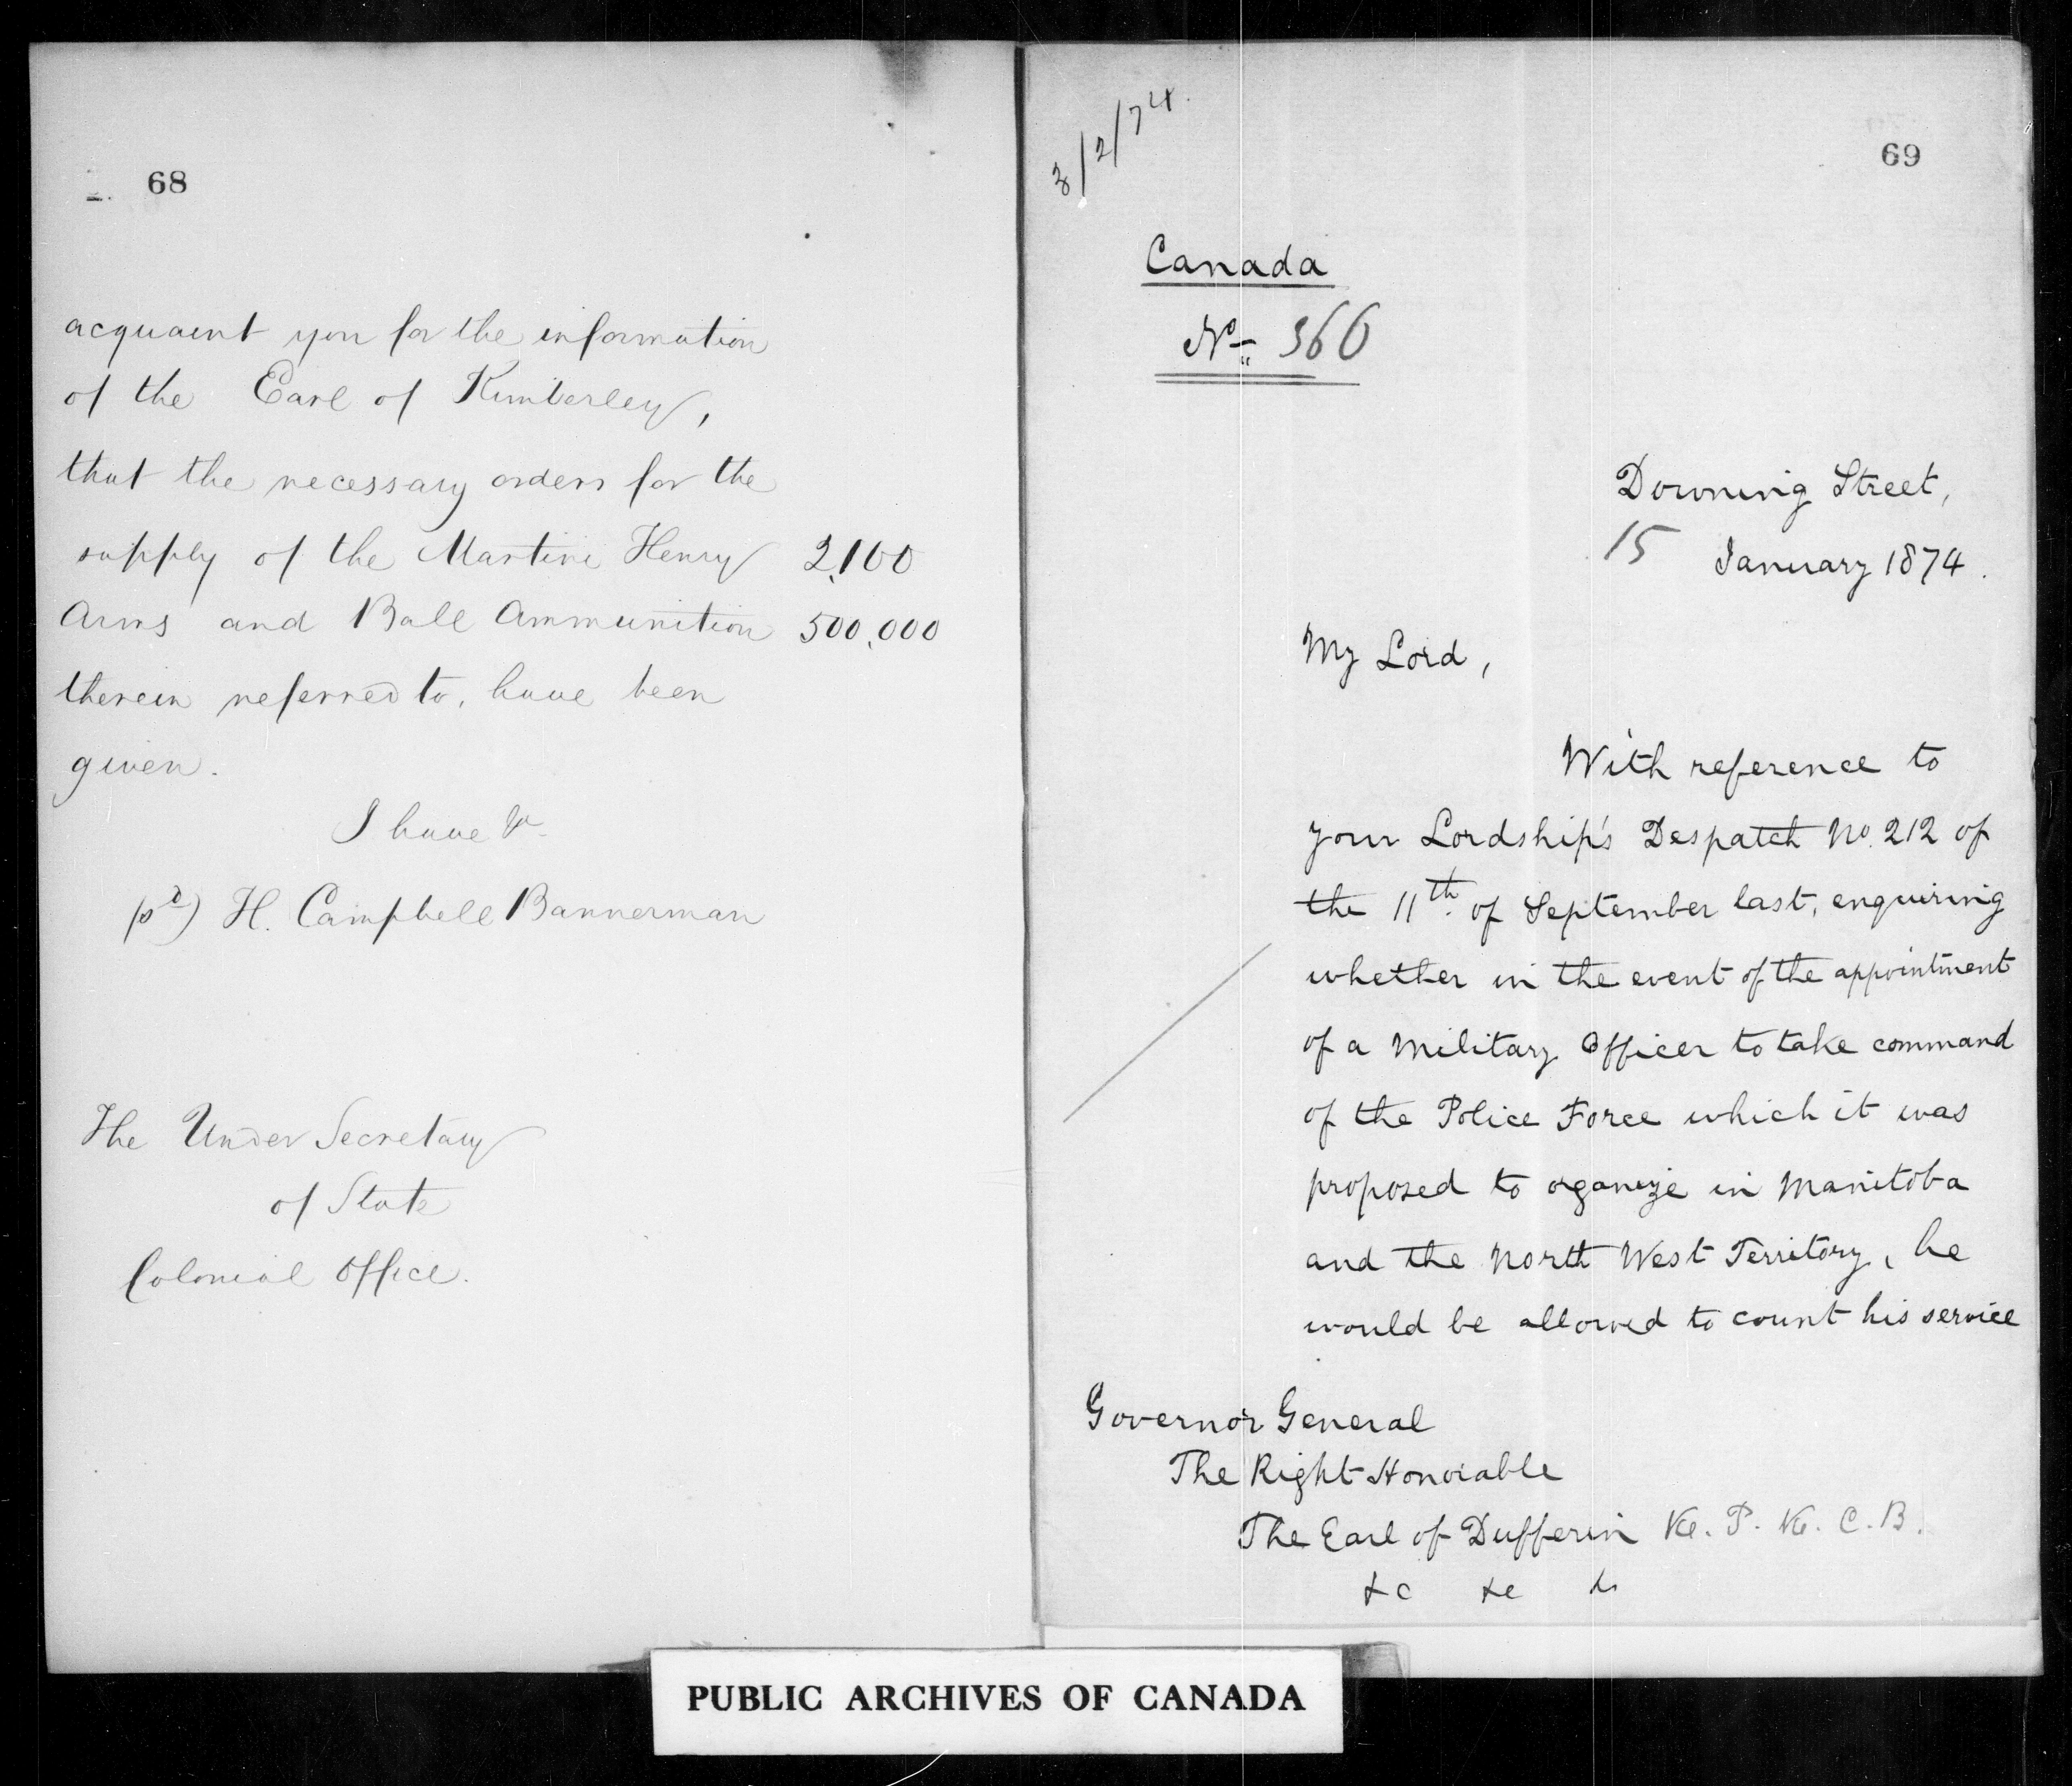 68
acquaint you for the information
of the Earl of Kimberley,
that the necessary orders for the
supply of the Martini Henry 2,100
Arms and Ball Ammunition 500,000
therein referred to, have been
given.
I have &c
(sd) H. Campbell Bannerman
The Under Secretary
of State
Colonial Office.
69
3/2/74.
Canada
No 366
Downing Street,
15 January 1874.
My Lord,
With reference to
your Lordship's Despatch No. 212 of
the 11th of September last, enquiring
whether in the event of the appointment
of a Military Officer to take command
of the Police Force which it was
proposed to organize in Manitoba
and the North West Territory, he
would be allowed to count his service
Governor General
The Right Honorable
The Earl of Dufferin K. P. K. C. B.
&c &c &c
PUBLIC ARCHIVES OF CANADA